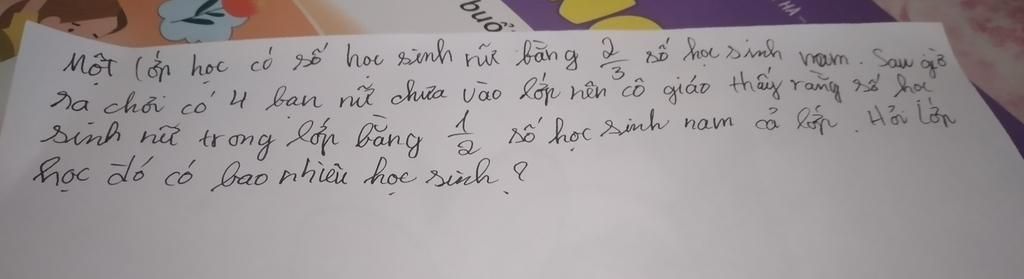 buổ
HÀ -
Một lớp học có số học sinh nữ bằng 2/3 số học sinh nam. Sau giờ
ra chơi có 4 bạn nữ chưa vào lớp nên cô giáo thấy rằng số học
sinh nữ trong lớp bằng 1/2 số học sinh nam cả lớp. Hỏi lớp
học đó có bao nhiêu học sinh?